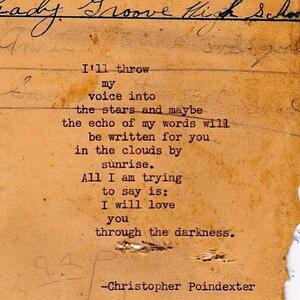 Shady Groove High School
I'll throw
my
voice into
the stars and maybe
the echo of my words will
be written for you
in the clouds by
sunrise.
All I am trying
to say is:
I will love
you
through the darkness.
-Christopher Poindexter